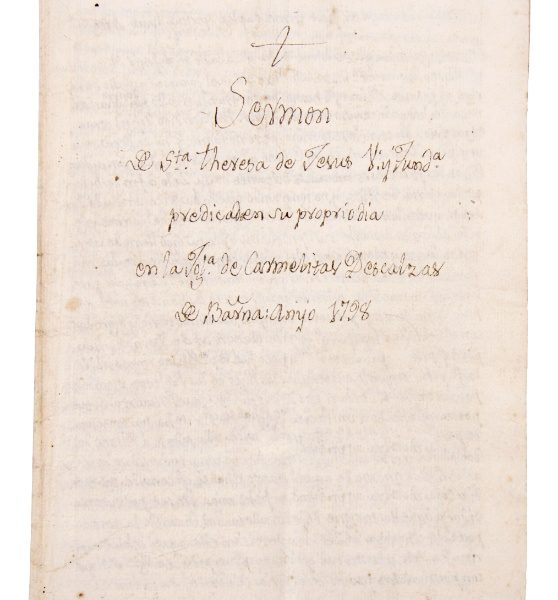 Sermon
De Sta. Theresa de Jesus V. y Funda.
predicado en su propriodia
en la Igla. de Carmelitas Descalzas
De Barna: Anyo 1798